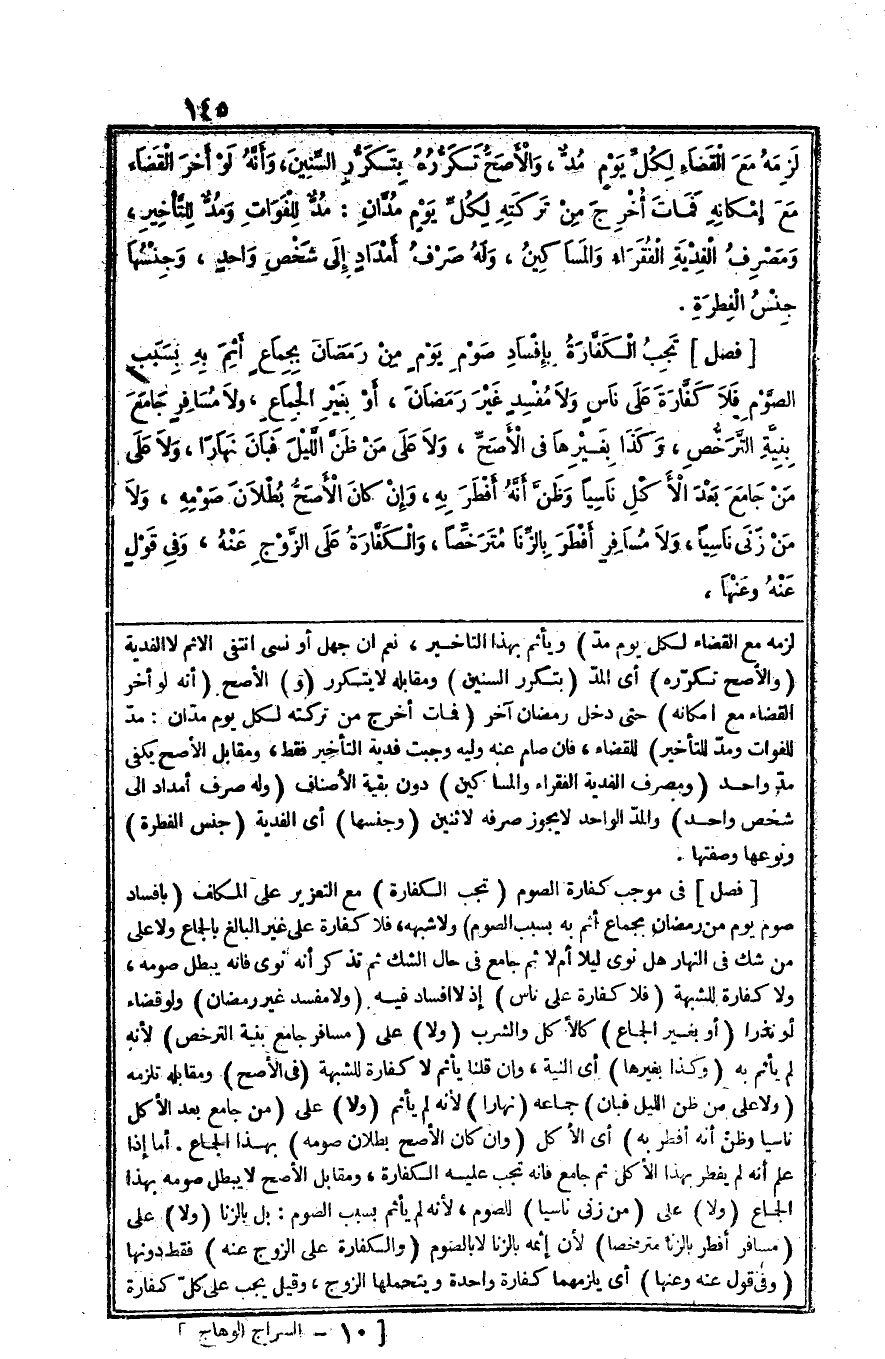 ١٤٥
لَزِمَهُ مَعَ الْقَضَاءِ لِكُلِّ يَوْمٍ مُدٌّ ، وَالْأَصَحُّ تَكَرُّرُهُ بِتَكَرُّرِ السِّنِينَ، وَأَنَّهُ لَوْ أَخَّرَ الْقَضَاءَ
مَعَ إِمْكَانِهِ فَمَاتَ أُخْرِجَ مِنْ تَرِكَتِهِ لِكُلِّ يَوْمٍ مُدَّانِ : مُدٌّ لِلْفَوَاتِ وَمُدٌّ لِلتَّأْخِيرِ ،
وَمَصْرِفُ الْفِدْيَةِ الْفُقَرَاءُ وَالمَسَاكِينُ ، وَلَهُ صَرْفُ أَمْدَادٍ إِلَى شَخْصٍ وَاحِدٍ ، وَجِنْسُهَا
جِنْسُ الْفِطْرَةِ .
[ فصل ] تَجِبُ الْكَفَّارَةُ بِإِفْسَادِ صَوْمِ يَوْمٍ مِنْ رَمَضَانَ بِجِمَاعٍ أَثِمَ بِهِ بِسَبَبِ
الصَّوْمِ فَلَا كَفَّارَةَ عَلَى نَاسٍ وَلاَ مُفْسِدِ غَيْرَ رَمَضَانَ ، أَوْ بِغَيْرِ الْجِمَاعِ ، ولاَ مُسَافِرٍ جَامَعَ
بِنِيَّةِ التَّرَخُّصِ ، وَكَذَا بِغَيْرِهَا فى الْأَصَحِّ ، وَلاَ عَلَى مَنْ ظَنَّ اللَّيْلَ فَبَانَ نَهَارًا ، وَلاَ عَلَى
مَنْ جَامَعَ بَعْدَ الْأَكْلِ نَاسِياً وَظَنَّ أَنَّهُ أَفْطَرَ بِهِ ، وَإِنْ كانَ الْأَصَحُّ بُطْلاَنَ صَوْمِهِ ، وَلاَ
مَنْ زَنَى نَاسِياً ، وَلاَ مُسَافِرٍ أَفْطَرَ بِالزِّنَا مُتَرَخِّصاً ، وَالْكَفَّارَةُ عَلَى الزَّوْجِ عَنْهُ ، وَفِي قَوْلٍ
عَنْهُ وعَنْهَا ،
لزمه مع القضاء لكل يوم مدّ ) ويأثم بهذا التاخير ، نعم ان جهل أو نسى انتفى الاثم لا الفدية
( والأصح تكرّره ) أى المدّ ( بتكرر السنين ) ومقابله لا يتكرر ( و ) الأصح ( أنه لو أخر
القضاء مع امكانه ) حتى دخل رمضان آخر ( فمات أخرج من تركته لكل يوم مدّان : مدّ
للفوات ومدّ للتأخير ) للقضاء ، فان صام عنه وليه وجبت فدية التأخير فقط ، ومقابل الأصح يكفى
مدّ واحد ( ومصرف الفدية الفقراء والمساكين ) دون بقية الأصناف ( وله صرف أمداد الى
شخص واحد ) والمدّ الواحد لا يجوز صرفه لاثنين ( وجنسها ) أى الفدية ( جنس الفطرة )
ونوعها وصفتها .
[ فصل ] فى موجب كفارة الصوم ( تجب الكفارة ) مع التعزير على المكلف ( بافساد
صوم يوم من رمضان بجماع أثم به بسبب الصوم ) ولا شبهه ، فلا كفارة على غير البالغ بالجماع ولا على
من شك فى النهار هل نوى ليلا أم لا ثم جامع فى حال الشك ثم تذكر أنه نوى فانه يبطل صومه ،
ولا كفارة للشبهة ( فلا كفارة على ناس ) إذ لا افساد فيه ( ولا مفسد غير رمضان ) ولو قضاء
أو نذرا ( أو بغير الجماع ) كالأكل والشرب ( ولا ) على ( مسافر جامع بنية الترخص ) لأنه
لم يأثم به ( وكذا بغيرها ) أى النية ، وان قلنا يأثم لا كفارة للشبهة ( فى الأصح ) ومقابله تلزمه
( ولا على من ظن الليل فبان ) جماعه ( نهارا ) لأنه لم يأثم ( ولا ) على ( من جامع بعد الأكل
ناسيا وظن أنه أفطر به ) أى الأكل ( وان كان الأصح بطلان صومه ) بهذا الجماع . أما إذا
علم أنه لم يفطر بهذا الأكل ثم جامع فانه تجب عليه الكفارة ، ومقابل الأصح لا يبطل صومه بهذا
الجماع ( ولا ) على ( من زنى ناسيا ) للصوم ، لأنه لم يأثم بسبب الصوم : بل بالزنا ( ولا ) على
( مسافر أفطر بالزنا مترخصا ) لأن إثمه بالزنا لا بالصوم ( والكفارة على الزوج عنه ) فقط دونها
( وفى قول عنه وعنها ) أى يلزمهما كفارة واحدة ويتحملها الزوج ، وقيل يجب على كلّ كفارة
[ ١٠ - السراج الوهاج ]